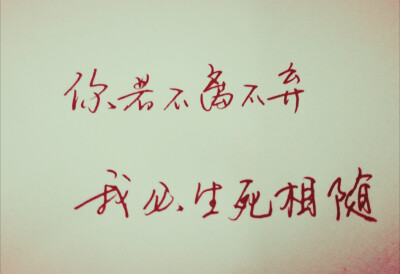 你若不离不弃
我必生死相随